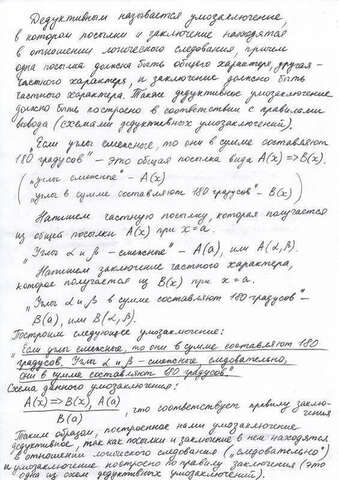 Дедуктивным называется умозаключение,
в котором посылки и заключение находятся
в отношении логического следования, причем
одна посылка должна быть общего характера, другая -
частного характера, и заключение должно быть
частного характера. Также дедуктивное умозаключение
должно быть построено в соответствии с правилами
вывода (схемами дедуктивных умозаключений).
„Если углы смежные, то они в сумме составляют
180 градусов" - это общая посылка вида A(x) => B(x).
(„углы смежные" - A(x)
„углы в сумме составляют 180 градусов" - B(x))
Напишем частную посылку, которая получается
из общей посылки A(x) при x=a.
„Углы α и β - смежные" - A(a), или A(α, β).
Напишем заключение частного характера,
которое получается из B(x) при x = a.
„Углы α и β в сумме составляют 180 градусов" -
B(a), или B(α, β).
Построим следующее умозаключение:
„Если углы смежные, то они в сумме составляют 180
градусов. Углы α и β - смежные, следовательно,
они в сумме составляют 180 градусов."
Схема данного умозаключения:
A(x) => B(x), A(a)
B(a)
, что соответствует правилу заключения
Таким образом, построенное нами умозаключение
дедуктивное, так как посылки и заключение в нем находятся
в отношении логического следования („следовательно")
и умозаключение построено по правилу заключения (это
одна из схем дедуктивных умозаключений).